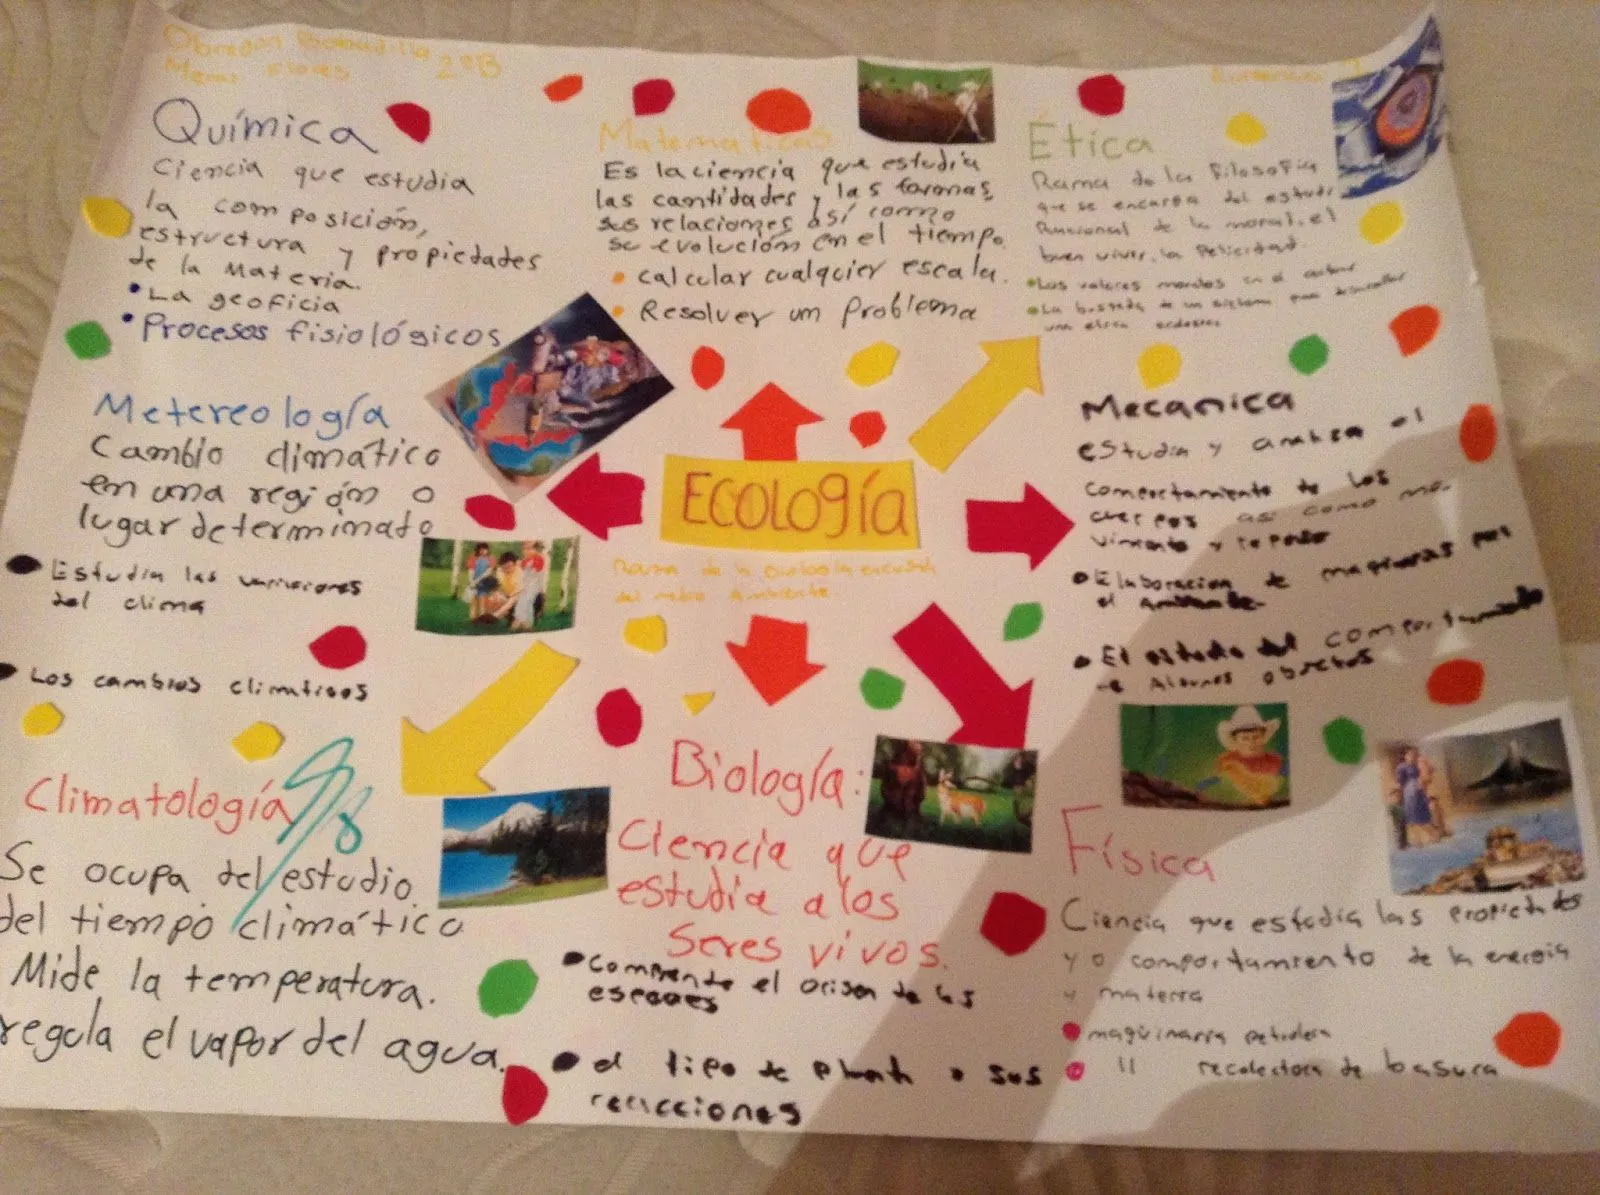 Obregon Bobadilla 2ºB
Flores
Química
Ciencia que estudia
la composición,
estructura y propiedades
de la Materia.
La geoficia
Procesos fisiológicos
Matematicas
Es la ciencia que estudia
las cantidades y las formas,
sus relaciones así como
su evolución en el tiempo.
calcular cualquier escala.
Resolver un problema
Ética
Rama de la filosofia
que se encarga del estudi
racional de la moral, el
buen vivir, la felicidad.
Los valores morales en el
La busqueda de un sistema para desarrollar
una
Metereología
Cambio climático
en una región o
lugar determinato
Estudia las variaciones
del clima
Los cambios climaticos
ECOLOGÍA
Rama de la
del medio Ambiente
Mecanica
estudia y analiza el
comportamiento de los
cuerpos así como mo-
vimiento y reposo
Elaboracion de maquinarias por
el Ambiente
El estudio del comportamiento
de Algunos objetos
Climatología
98
Se ocupa del estudio
del tiempo climático
Mide la temperatura.
regula el vapor del agua.
Biología:
Ciencia que
estudia a los
Seres vivos.
Comprende el origen de las
especies
el tipo de planta o sus
reacciones
Física
Ciencia que estudia las propiedades
y o comportamiento de la energia
y materia
maquinaria petrolera
11 recolectora de basura